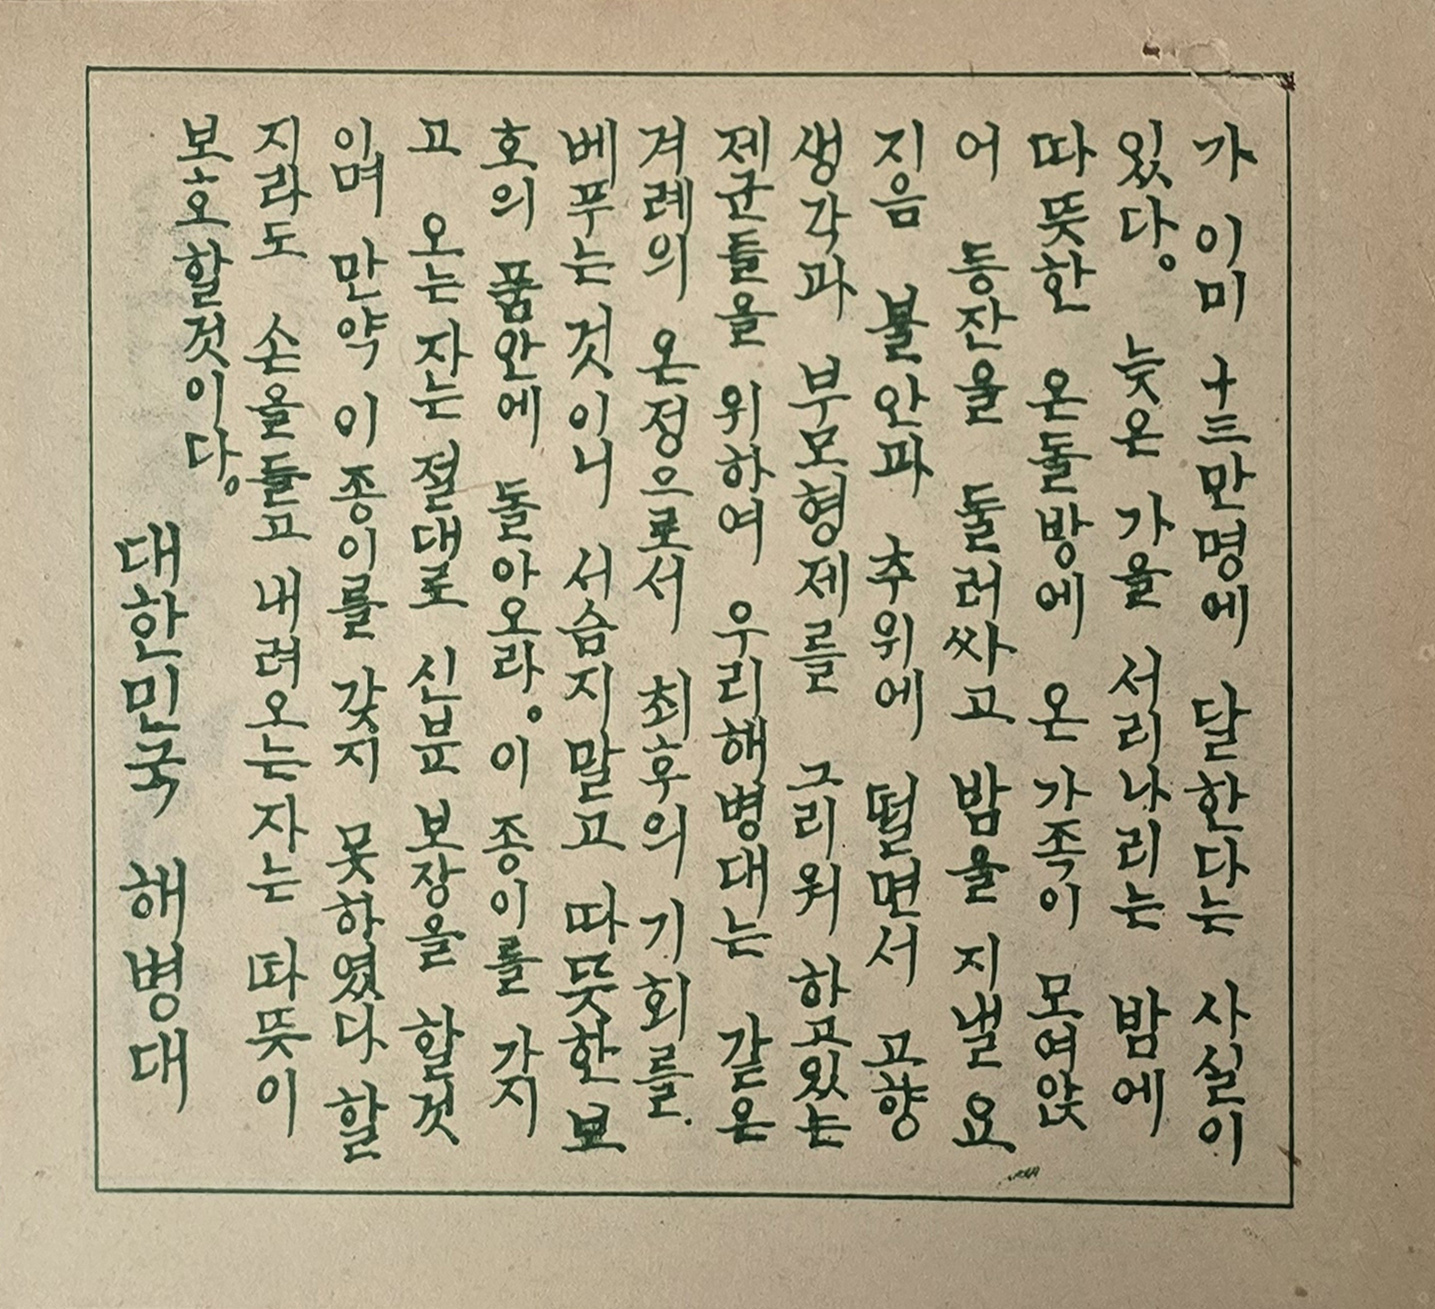 가 이미 十三만명에 달한다는 사실이
있다. 늦은 가을 서리나리는 밤에
따뜻한 온돌방에 온 가족이 모여앉
어 등잔을 둘러싸고 밤을 지낼 요
지음 불안과 추위에 떨면서 고향
생각과 부모형제를 그리워 하고있는
제군들을 위하여 우리해병대는 같은
겨레의 온정으로서 최후의 기회를
베푸는 것이니 서슴지말고 따뜻한 보
호의 품안에 돌아오라. 이 종이를 가지
고 오는 자는 절대로 신분 보장을 할것
이며 만약 이 종이를 갖지 못하였다 할
지라도 손을들고 내려오는자는 따뜻이
보호할것이다.
대한민국 해병대